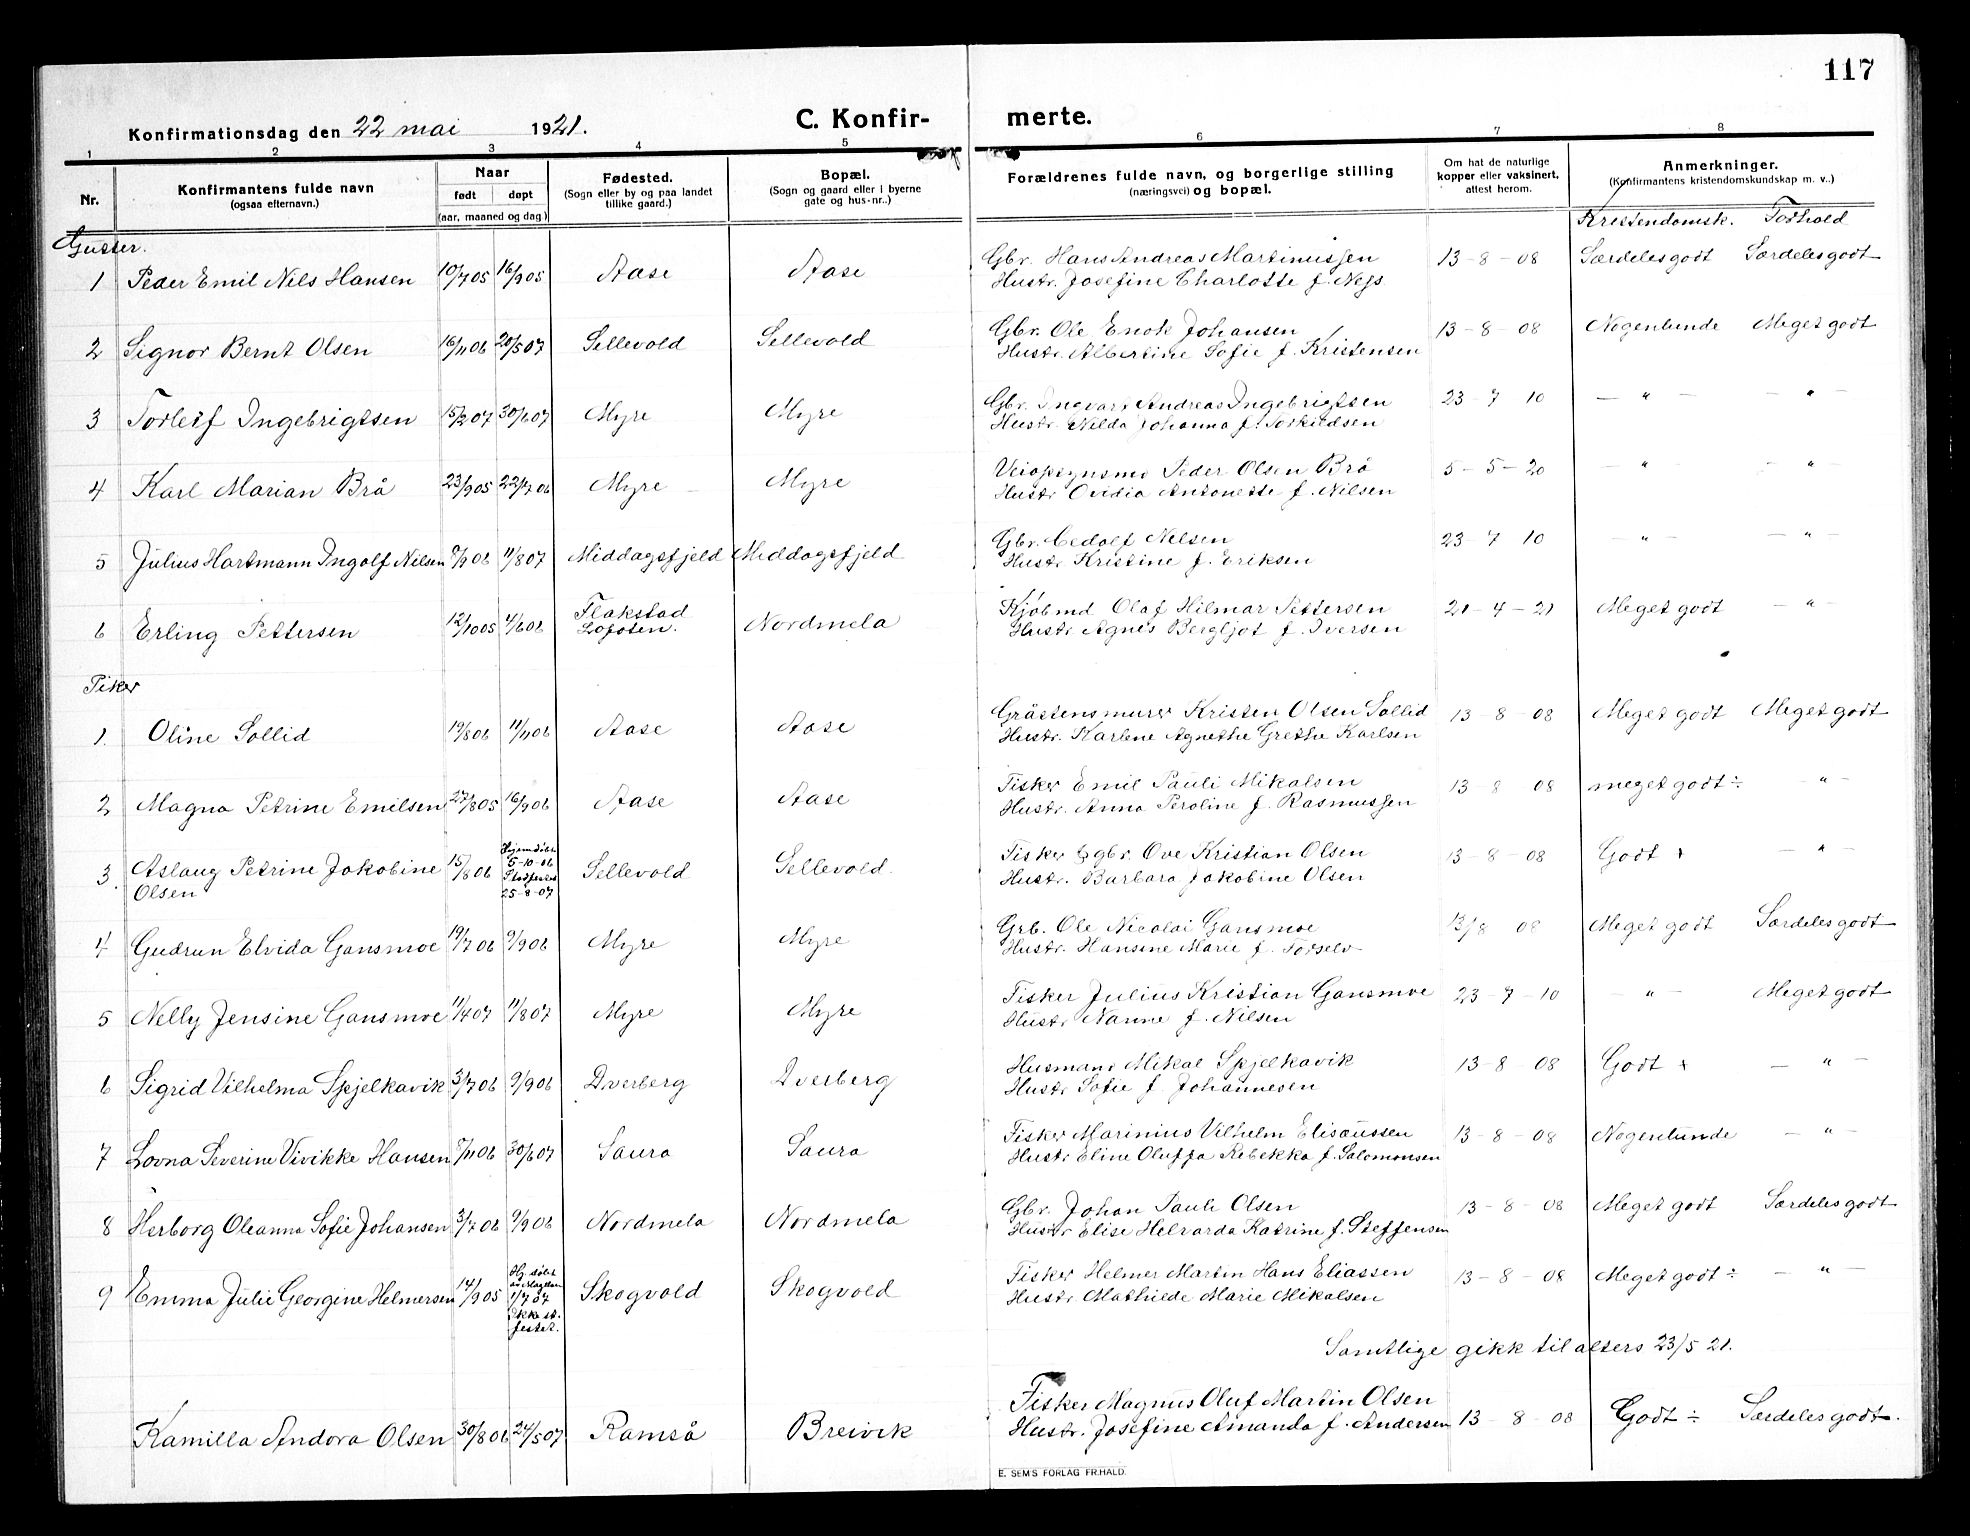 117
Konfirmationsdag den 22 mai 1921. C. Konfirmerte.
1 2 3 4 5 6 7 8
Nr. Konfirmantens fulde navn (ogsaa efternavn.) Naar født døpt (aar, maaned og dag.) Fødested. (Sogn eller by og paa landet tillike gaard.) Bopæl. (Sogn og gaard eller i byerne gate og hus-nr..) Forældrenes fulde navn, og borgerlige stilling (næringsvei) og bopæl. Om hat de naturlige kopper eller vaksinert, attest herom. Anmerkninger. (Konfirmantens kristendomskundskap m. v..)
Kristendomsk. Forhold
Gutter.
1 Peder Emil Nils Hansen 10/7 05 16/9 05 Aase Aase Gbr. Hans Andreas Martinussen 13-8-08 Særdeles godt Særdeles godt
Hustr. Josefine Charlotte f. Nejs
2 Signor Bernt Olsen 16/11 06 20/5 07 Sellevold Sellevold Gbr. Ole Enok Johansen 13-8-08 Nogenlunde Meget godt
Hustr. Albertine Sofie f. Kristensen
3 Torleif Ingebrigtsen 15/2 07 30/6 07 Myre Myre Gbr. Ingvart Andreas Ingebrigtsen 23-7 10 — " — — " —
Hustr. Nilda Johanna f. Torkildsen
4 Karl Marian Brå 23/9 05 22/7 06 Myre Myre Veiopsynsmd Peder Olsen Brå 5-5-20 — " — — " —
Hustr Ovidia Antonette f. Nilsen
5 Julius Hartmann Ingolf Nilsen 8/9 06 11/8 07 Middagsfjeld Middagsfjeld Gbr. Cedolf Nilsen 23-7 10 — " — — " —
Hustr. Kristine f. Eriksen
6 Erling Pettersen 12/10 05 4/6 06 Flakstad Lofoten. Nordmela Kjøbmd Olaf Hilmar Pettersen 21-4-21 Meget godt — " —
Hustr Agnes Bergljot f. Iversen
Piker
1. Oline Sollid 19/8 06 11/11 06 Aase Aase Gråstensmurer Kristen Olsen Sollid 13-8-08 Meget godt Meget godt
Hustr. Karlene Agnethe Grethe Karlsen
2 Magna Petrine Emilsen 27/8 05 16/9 06 Aase Aase Fisker Emil Pauli Mikalsen 13-8 08 meget godt ÷ — " —
Hustr. Anna Peroline f. Rasmussen
3. Aslaug Petrine Jakobine Olsen 15/8 06 Hjemdøbt 5-10-06 Stadfestet 25-8-07 Sellevold Sellevold. Fisker & gbr. Ove Kristian Olsen 13-8-08 Godt + — " —
Hustr. Barbara Jakobine Olsen
4 Gudrun Elvida Gansmoe 19/7 06 9/9 06 Myre Myre Grb. Ole Nicolai Gansmoe 13/8 08 Meget godt Særdeles godt
Hustr. Hansine Marie f. Torselv
5 Nelly Jensine Gansmoe 11/4 07 11/8 07 Myre Myre Fisker Julius Kristian Gansmoe 23-7-10 — " — Meget godt
Hustr Nanne f. Nilsen
6 Sigrid Vilhelma Spjelkavik 3/7 06 9/9 06 Dverberg Dverberg Husmand Mikal Spjelkavik 13-8-08 Godt + — " —
Hustr Sofie f. Johannesen
7 Lovna Severine Vivikke Hansen 8/11 06 30/6 07 Saura Saura Fisker Marinius Vilhelm Elisæussen 13-8-08 Nogenlunde — " —
Hustr Eline Oluffa Rebekka f. Salomonsen
8 Herborg Oleanna Sofie Johansen 3/7 06 9/9 06 Nordmela Nordmela Gbr. Johan Pauli Olsen 13-8-08 Meget godt Særdeles godt
Hustr Elise Helvarda Katrine f. Steffensen
9 Emma Julie Georgine Helmersen 14/9 05 Hj. døbt 1/7 07 Ikke st. festet. Skogvold Skogvold Fisker Helmer Martin Hans Eliassen 13-8-08 Meget godt ÷ — " —
Hustr Mathilde Marie Mikalsen
Samtlige gikk til alters 23/5 21.
Kamilla Andora Olsen 30/8 06 24/5 07 Ramså Breivik Fisker Magnus Oluf Martin Olsen 13-8-08 Godt ÷ Særdeles godt.
Hustr. Josefine Amanda f. Andersen
E. SEM'S FORLAG FR.HALD.